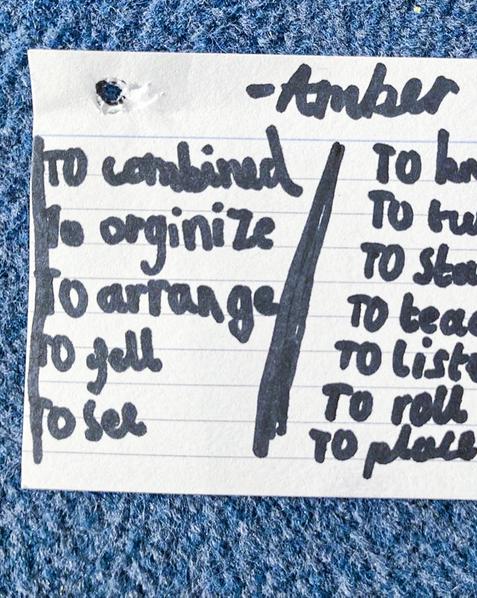 -Amber
TO combined
To orginize
To arrange
TO fell
To see
TO
TO
TO
TO
TO
To roll
TO place